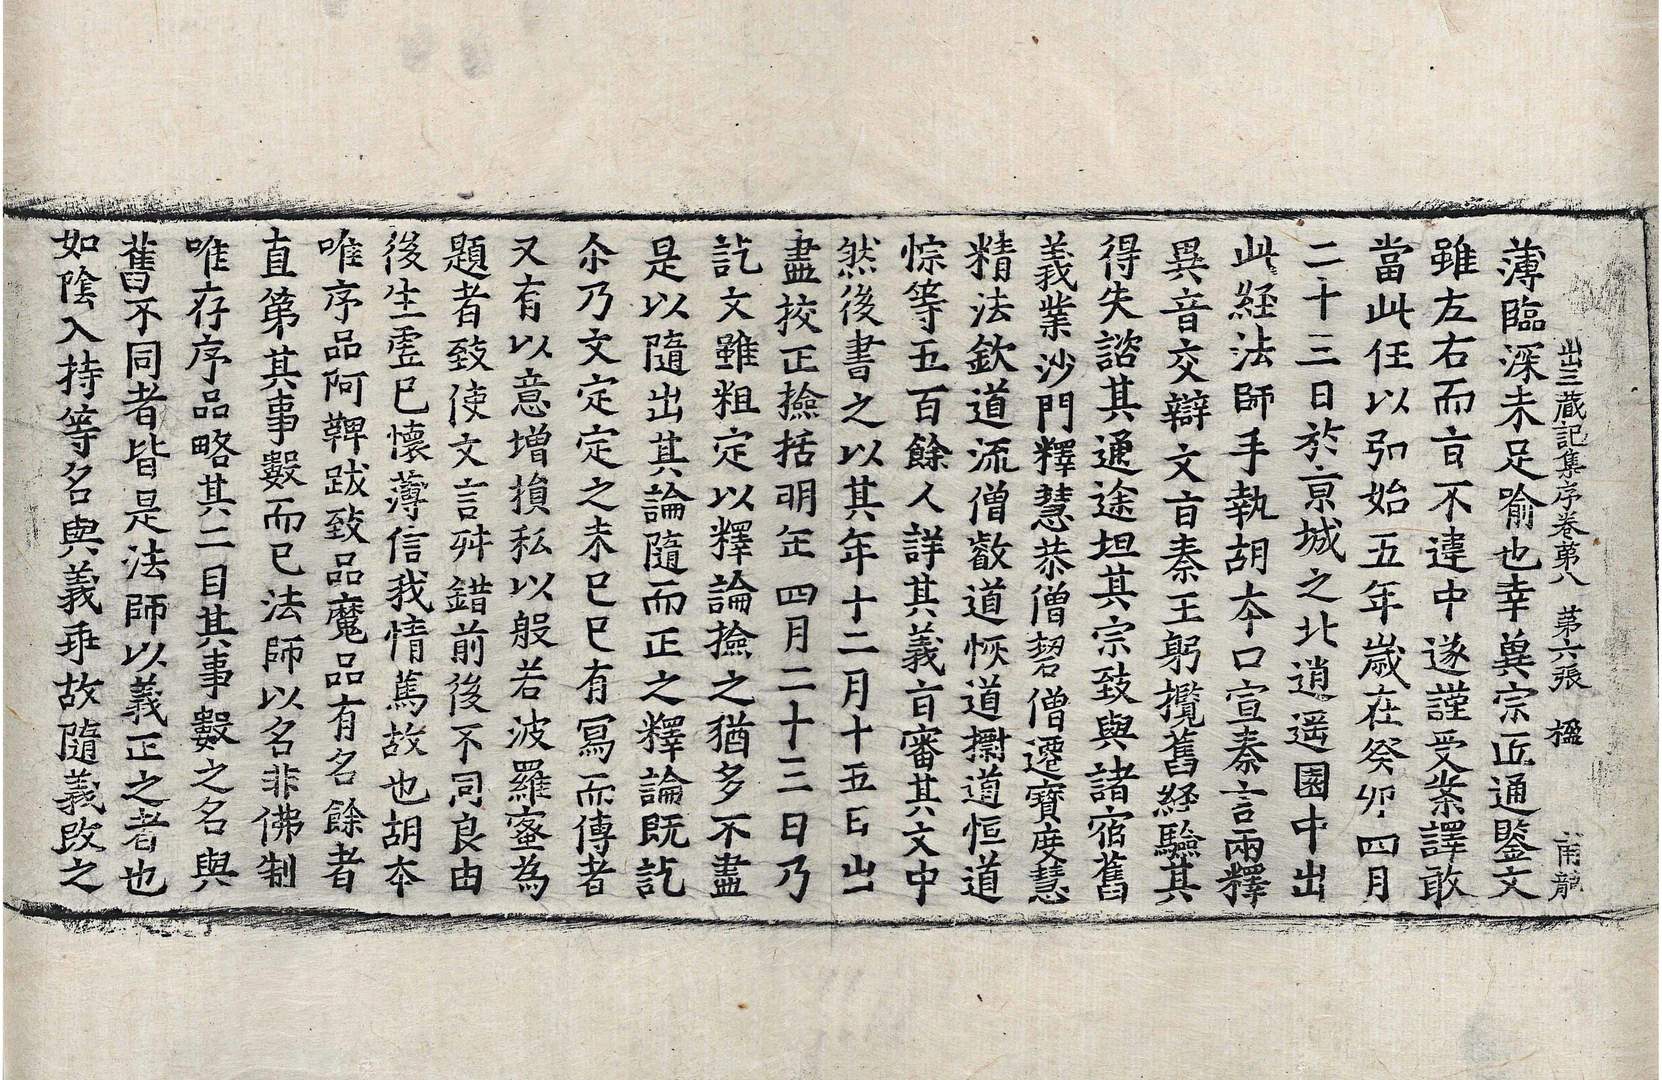 出三藏記集序卷第八 第六張 楹 甫龍
薄臨深未足喻也幸冀宗匠通鑒文
雖左右而旨不違中遂謹受案譯敢
當此任以弘始五年歲在癸卯四月
二十三日於京城之北逍遥園中出
此經法師手執胡夲口宣秦言兩釋
異音交辯文旨秦王躬攬舊經驗其
得失諮其通途坦其宗致與諸宿舊
義業沙門釋慧恭僧䂮僧遷寶度慧
精法欽道流僧叡道恢道㯹道恒道
悰等五百餘人詳其義旨審其文中
然後書之以其年十二月十五日出
盡挍正撿括明年四月二十三日乃
訖文雖粗定以釋論撿之猶多不盡
是以隨出其論隨而正之釋論既訖
尒乃文定定之未已已有寫而傳者
又有以意增損私以般若波羅蜜為
題者致使文言舛錯前後不同良由
後生虛已懷薄信我情篤故也胡夲
唯序品阿鞞跋致品魔品有名餘者
直苐其事數而已法師以名非佛制
唯存序品略其二目其事數之名與
舊不同者皆是法師以義正之者也
如陰入持等名與義乖故隨義改之